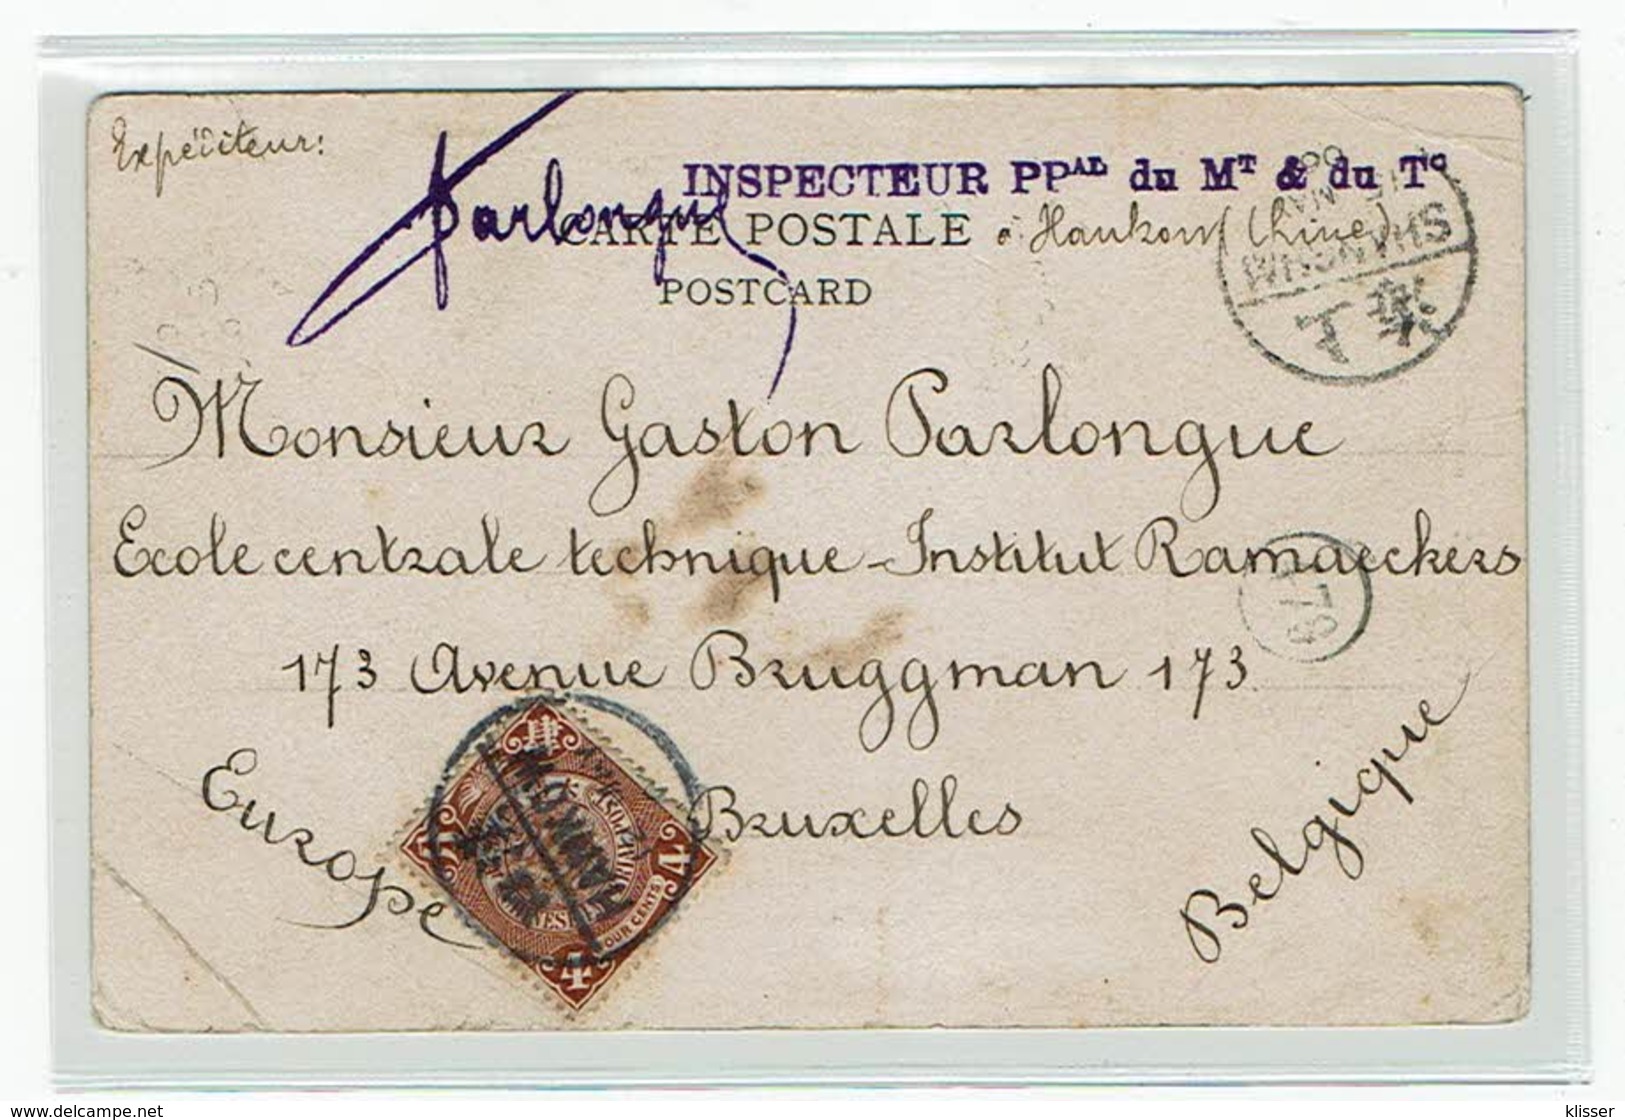 Expéditeur:
Parlongue
INSPECTEUR PPAL du MT & du TC
CARTE POSTALE à Hankow (Chine)
POSTCARD
SHANGHAI
Monsieur Gaston Parlongue
Ecole centrale technique - Institut Ramaeckers
173 Avenue Bruggman 173
Europe
Bruxelles
Belgique
肆
4
4
FOUR CENTS
HANKOW
www.delcampe.net
klisser